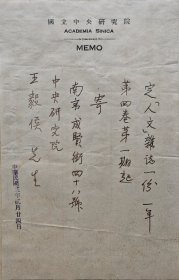 國立中央研究院
ACADEMIA SINICA
MEMO
定「人文」雜誌一份一年
第四卷第一期起
寄
南京成賢街四十八號
中央研究院
王毅侯先生